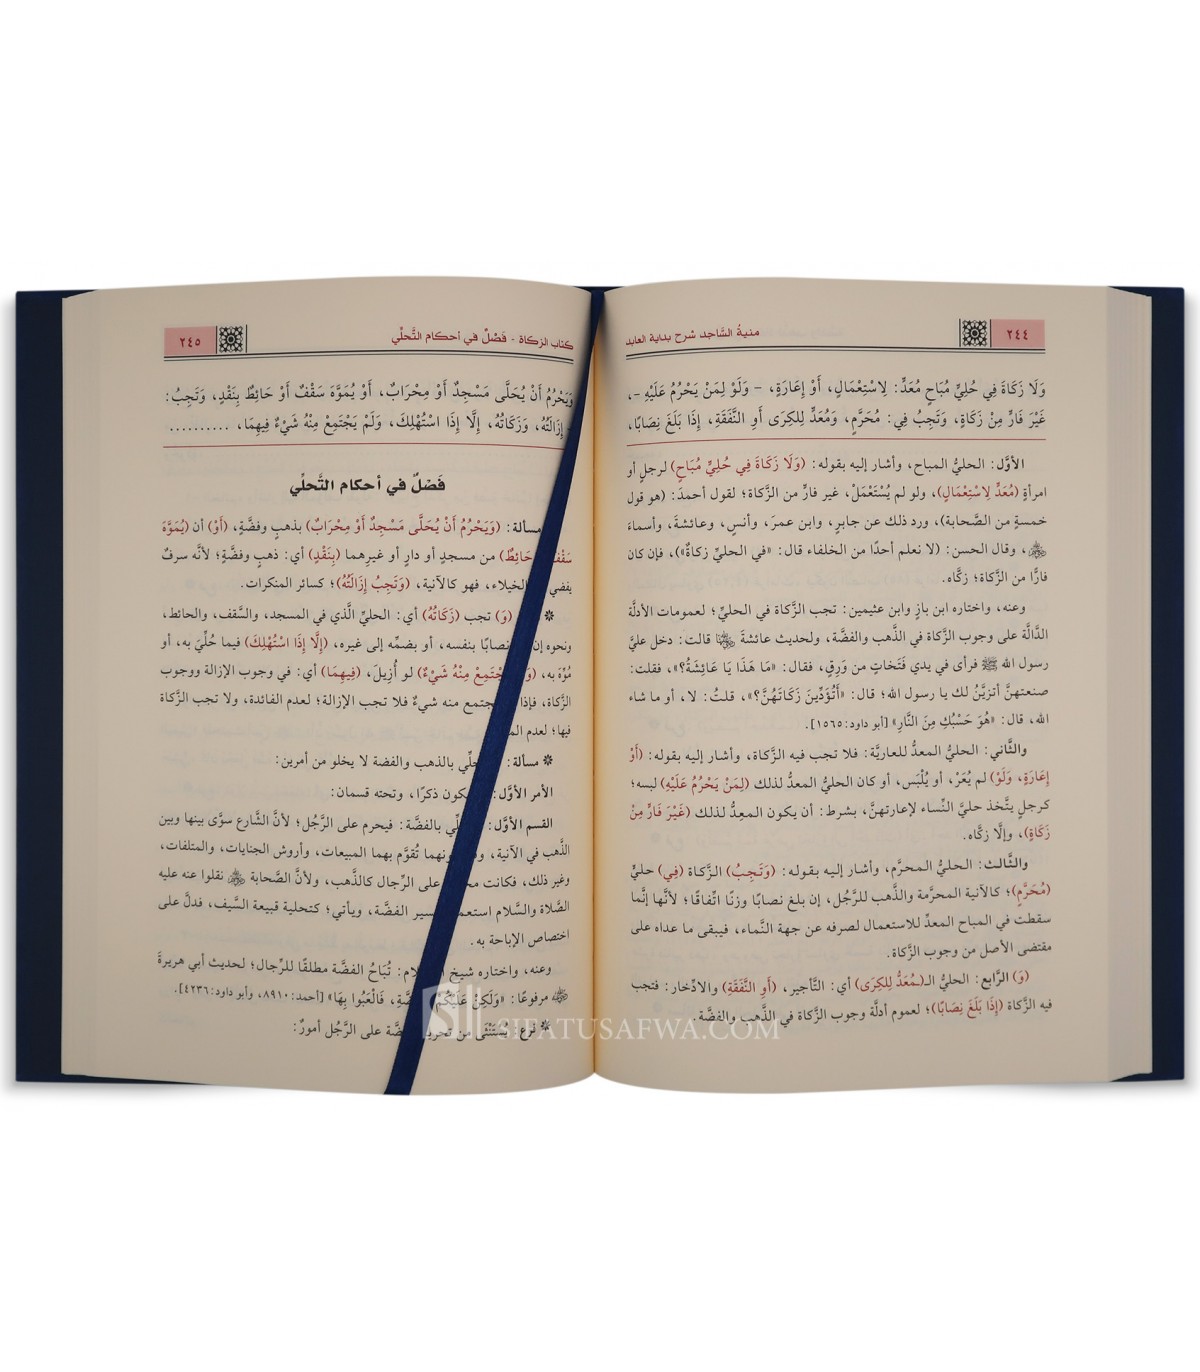 ٢٤٤
منيةُ السَّاجد شرح بداية العابد
وَلَا زَكَاةَ فِي حُلِيٍّ مُبَاحٍ مُعَدٍّ: لِاسْتِعْمَالٍ، أَوْ إِعَارَةٍ، - وَلَوْ لِمَنْ يَحْرُمُ عَلَيْهِ -،
غَيْرَ فَارٍّ مِنْ زَكَاةٍ، وَتَجِبُ فِي: مُحَرَّمٍ، وَمُعَدٍّ لِلكِرَى أَوِ النَّفَقَةِ، إِذَا بَلَغَ نِصَابًا،
الأوَّل: الحليُّ المباح، وأشار إليه بقوله: (وَلَا زَكَاةَ فِي حُلِيٍّ مُبَاحٍ) لرجلٍ أو
امرأةٍ (مُعَدٍّ لِاسْتِعْمَالٍ)، ولو لم يُسْتَعْمَلْ، غير فارٍّ من الزَّكاة؛ لقول أحمدَ: (هو قول
خمسةٍ من الصَّحابة)، ورد ذلك عن جابرٍ، وابن عمرَ، وأنسٍ، وعائشةَ، وأسماءَ
ﷺ، وقال الحسن: (لا نعلم أحدًا من الخلفاء قال: «في الحليِّ زكاةٌ»)، فإن كان
فارًّا من الزَّكاة؛ زكَّاه.
وعنه، واختاره ابن بازٍ وابن عثيمين: تجب الزَّكاة في الحليِّ؛ لعمومات الأدلَّة
الدَّالَّة على وجوب الزَّكاة في الذَّهب والفضَّة، ولحديث عائشةَ قالت: دخل عليَّ
رسول الله ﷺ فرأى في يدي فَتَخاتٍ من وَرِقٍ، فقال: «مَا هَذَا يَا عَائِشَةُ؟»، فقلت:
صنعتهنَّ أتزيَّنُ لك يا رسول الله؛ قال: «أَتُؤَدِّينَ زَكَاتَهُنَّ؟»، قلتُ: لا، أو ما شاء
الله، قال: «هُوَ حَسْبُكِ مِنَ النَّارِ» [أبو داود: ١٥٦٥].
والثَّاني: الحليُّ المعدُّ للعاريَّة: فلا تجب فيه الزَّكاة، وأشار إليه بقوله: (أَوْ
إِعَارَةٍ، وَلَوْ) لم يُعَرْ، أو يُلْبَس، أو كان الحليُّ المعدُّ لذلك (لِمَنْ يَحْرُمُ عَلَيْهِ) لبسه؛
كرجلٍ يتَّخذ حليَّ النِّساء لإعارتهنَّ، بشرط: أن يكون المعِدُّ لذلك (غَيْرَ فَارٍّ مِنْ
زَكَاةٍ)، وإلَّا زكَّاه.
والثَّالث: الحليُّ المحرَّم، وأشار إليه بقوله: (وَتَجِبُ) الزَّكاة (فِي) حليٍّ
(مُحَرَّمٍ)؛ كالآنية المحرَّمة والذَّهب للرَّجُل، إن بلغ نصابًا وزنًا اتِّفاقًا؛ لأنَّها إنَّما
سقطت في المباح المعدِّ للاستعمال لصرفه عن جهة النَّماء، فيبقى ما عداه على
مقتضى الأصل من وجوب الزَّكاة.
(وَ) الرَّابع: الحليُّ الـ(مُعَدُّ لِلكِرَى) أي: التَّأجير، (أَوِ النَّفَقَةِ) والادِّخار: فتجب
فيه الزكاة (إِذَا بَلَغَ نِصَابًا)؛ لعموم أدلَّة وجوب الزَّكاة في الذَّهب والفضَّة.
كتاب الزكاة - فَصْلٌ في أحكام التَّحلِّي
٢٤٥
وَيَحْرُمُ أَنْ يُحَلَّى مَسْجِدٌ أَوْ مِحْرَابٌ، أَوْ يُمَوَّهَ سَقْفٌ أَوْ حَائِطٌ بِنَقْدٍ، وَتَجِبُ:
إِزَالَتُهُ، وَزَكَاتُهُ، إِلَّا إِذَا اسْتُهْلِكَ، وَلَمْ يَجْتَمِعْ مِنْهُ شَيْءٌ فِيهِمَا، ..........
فَصْلٌ في أحكام التَّحلِّي
مسألة: (وَيَحْرُمُ أَنْ يُحَلَّى مَسْجِدٌ أَوْ مِحْرَابٌ) بذهبٍ وفضَّة، (أَوْ) أن (يُمَوَّهَ
سَقْفٌ حَائِطٌ) من مسجدٍ أو دارٍ أو غيرهما (بِنَقْدٍ) أي: ذهبٍ وفضَّةٍ؛ لأنَّه سرفٌ
يفضي الخيلاء، فهو كالآنية، (وَتَجِبُ إِزَالَتُهُ)؛ كسائر المنكرات.
* (وَ) تجب (زَكَاتُهُ) أي: الحليِّ الَّذي في المسجد، والسَّقف، والحائط،
ونحوه إن نصابًا بنفسه، أو بضمِّه إلى غيره، (إِلَّا إِذَا اسْتُهْلِكَ) فيما حُلِّيَ به، أو
مُوِّهَ به، يَجْتَمِعْ مِنْهُ شَيْءٌ) لو أُزِيلَ، (فِيهِمَا) أي: في وجوب الإزالة ووجوب
الزَّكاة، فإذا يجتمع منه شيءٌ فلا تجب الإزالة؛ لعدم الفائدة، ولا تجب الزَّكاة
فيها؛ لعدم
* مسألة: التَّحلِّي بالذهب والفضة لا يخلو من أمرين:
الأمر الأوَّل: يكون ذكرًا، وتحته قسمان:
القسم الأوَّل: بالفضَّة: فيحرم على الرَّجُل؛ لأنَّ الشَّارع سوَّى بينها وبين
الذَّهب في الآنية، تُقوَّم بهما المبيعات، وأروش الجنايات، والمتلفات،
وغير ذلك، فكانت على الرِّجال كالذَّهب، ولأنَّ الصَّحابة نقلوا عنه عليه
الصَّلاة والسَّلام استعمال يسير الفضَّة، ويأتي؛ كتحلية قبيعة السَّيف، فدلَّ على
اختصاص الإباحة به.
وعنه، واختاره شيخ الإسلام: تُبَاحُ الفضَّة مطلقًا للرِّجال؛ لحديث أبي هريرةَ
مرفوعًا: «وَلَكِنْ عَلَيْكُمْ بِالفِضَّةِ، فَالْعَبُوا بِهَا» [أحمد: ٨٩١٠، وأبو داود: ٤٢٣٦].
* فرع: يُسْتَثْنَى من تحريم الفضة على الرَّجُل أمورٌ:
SIFATUSAFWA.COM